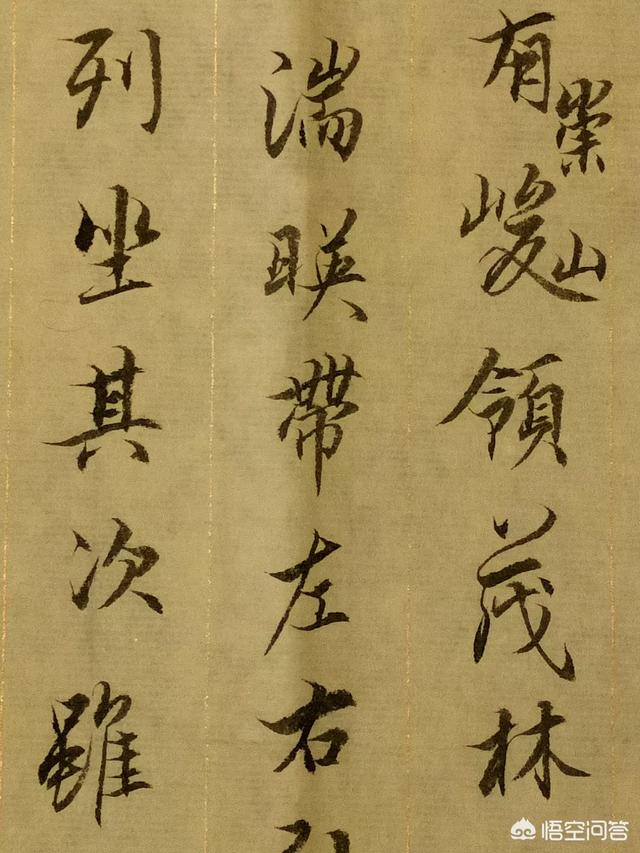 有崇
峻山領茂林
湍暎帶左右
列坐其次雖
悟空问答